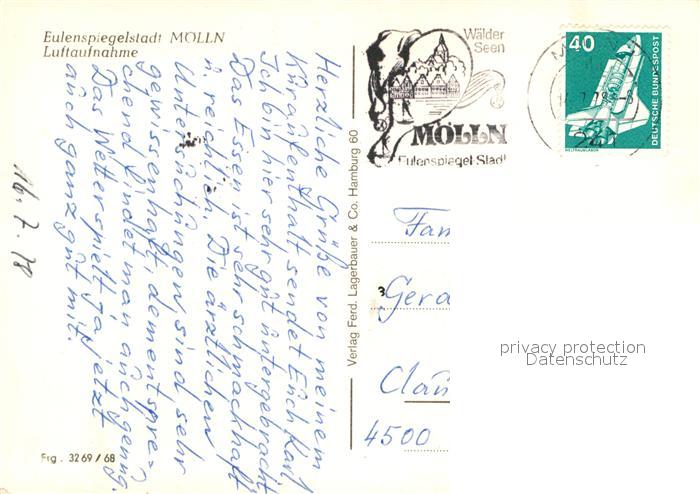 Eulenspiegelstadt MÖLLN
Luftaufnahme
Wälder
Seen
MÖLLN
Eulenspiegel-Stadt
40
DEUTSCHE BUNDESPOST
WELTRAUMLABOR
Herzliche Grüße von meinem
Kuraufenthalt sendet Euch Karl
Ich bin hier sehr gut untergebracht
Das Essen ist sehr schmackhaft
u. reichlich. Die ärztlichen
Untersuchungen sind sehr
gewissenhaft, dementspre=
chend findet man auch genug.
Das Wetter spielt ja jetzt
auch ganz gut mit.
16.7.78
Verlag Ferd. Lagerbauer & Co. Hamburg 60
Fam
Gera
Clau
4500
privacy protection
Datenschutz
Frg. 3269/68